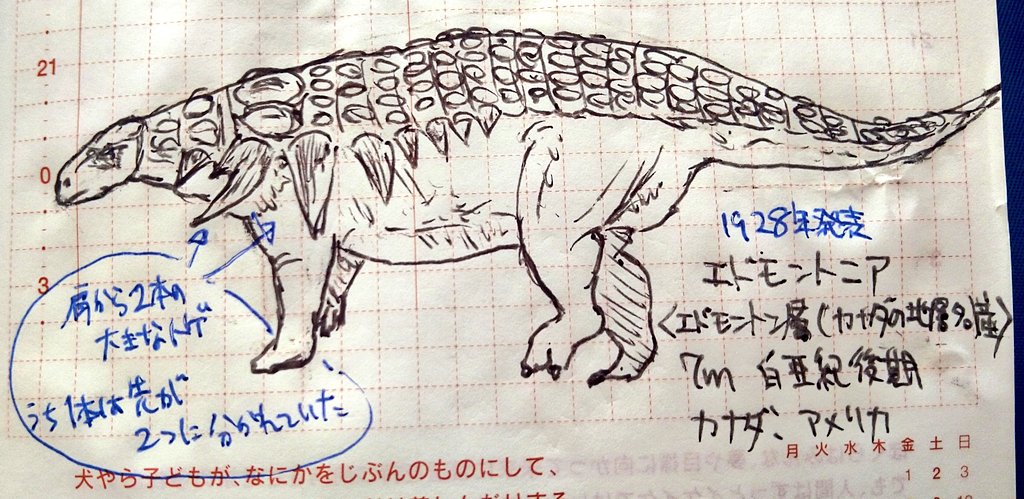 21
0
3
1928年発表
エドモントニア
<エドモントン層(カナダの地層名)産>
7m 白亜紀後期
カナダ、アメリカ
肩から2本の
大きなトゲ
うち1本は先が
2つに分かれていた
月 火 水 木 金 土 日
1 2 3
犬やら子どもが、なにかをじぶんのものにして、